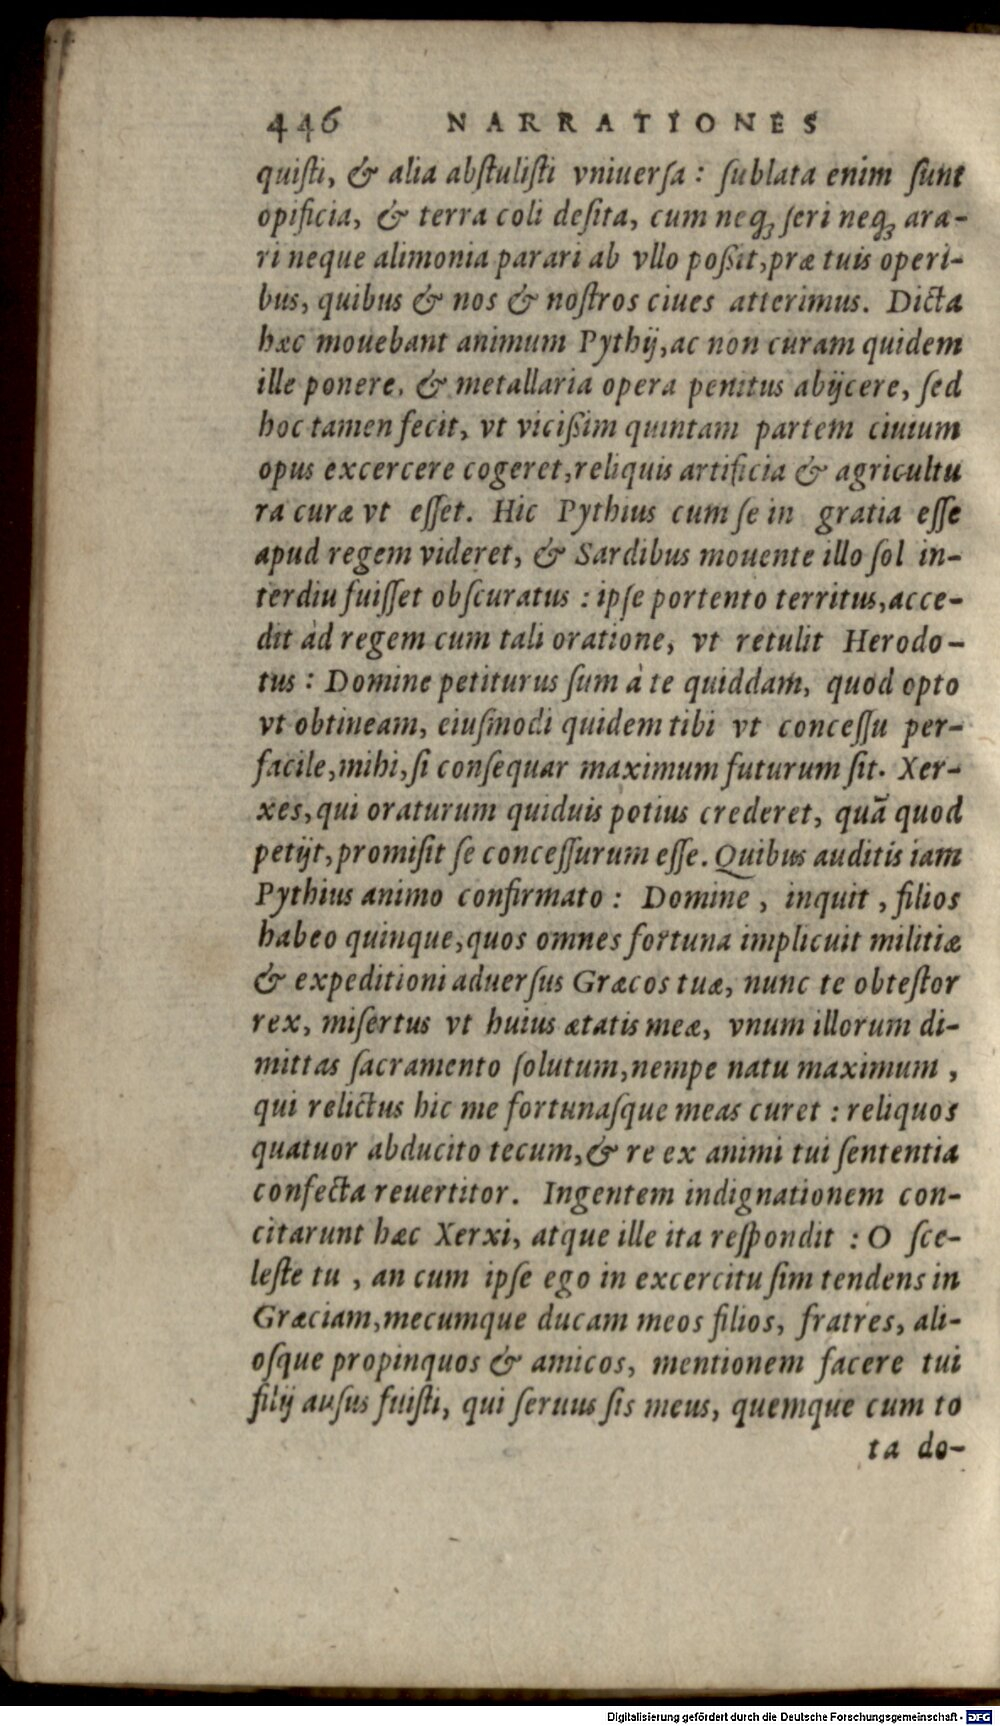 446 NARRATIONES
quiſti, & alia abſtuliſti vniuerſa: ſublata enim ſunt
opificia, & terra coli deſita, cum neqꝫ ſeri neqꝫ ara-
ri neque alimonia parari ab vllo poßit, præ tuis operi-
bus, quibus & nos & noſtros ciues atterimus. Dicta
hæc mouebant animum Pythij, ac non curam quidem
ille ponere, & metallaria opera penitus abijcere, ſed
hoc tamen fecit, vt vicißim quintam partem ciuium
opus excercere cogeret, reliquis artificia & agricultu
ra curæ vt eſſet. Hic Pythius cum ſe in gratia eſſe
apud regem videret, & Sardibus mouente illo ſol in-
terdiu fuiſſet obſcuratus: ipſe portento territus, acce-
dit ad regem cum tali oratione, vt retulit Herodo-
tus: Domine petiturus ſum à te quiddam, quod opto
vt obtineam, eiuſmodi quidem tibi vt conceſſu per-
facile, mihi, ſi conſequar maximum futurum ſit. Xer-
xes, qui oraturum quiduis potius crederet, quã quod
petijt, promiſit ſe conceſſurum eſſe. Quibus auditis iam
Pythius animo confirmato: Domine, inquit, filios
habeo quinque, quos omnes fortuna implicuit militiæ
& expeditioni aduerſus Græcos tuæ, nunc te obteſtor
rex, miſertus vt huius ætatis meæ, vnum illorum di-
mittas ſacramento ſolutum, nempe natu maximum,
qui relictus hic me fortunaſque meas curet: reliquos
quatuor abducito tecum, & re ex animi tui ſententia
confecta reuertitor. Ingentem indignationem con-
citarunt hæc Xerxi, atque ille ita reſpondit: O ſce-
leſte tu, an cum ipſe ego in excercitu ſim tendens in
Græciam, mecumque ducam meos filios, fratres, ali-
oſque propinquos & amicos, mentionem facere tui
filij auſus fuiſti, qui ſeruus ſis meus, quemque cum to
ta do-
Digitalisierung gefördert durch die Deutsche Forschungsgemeinschaft - DFG